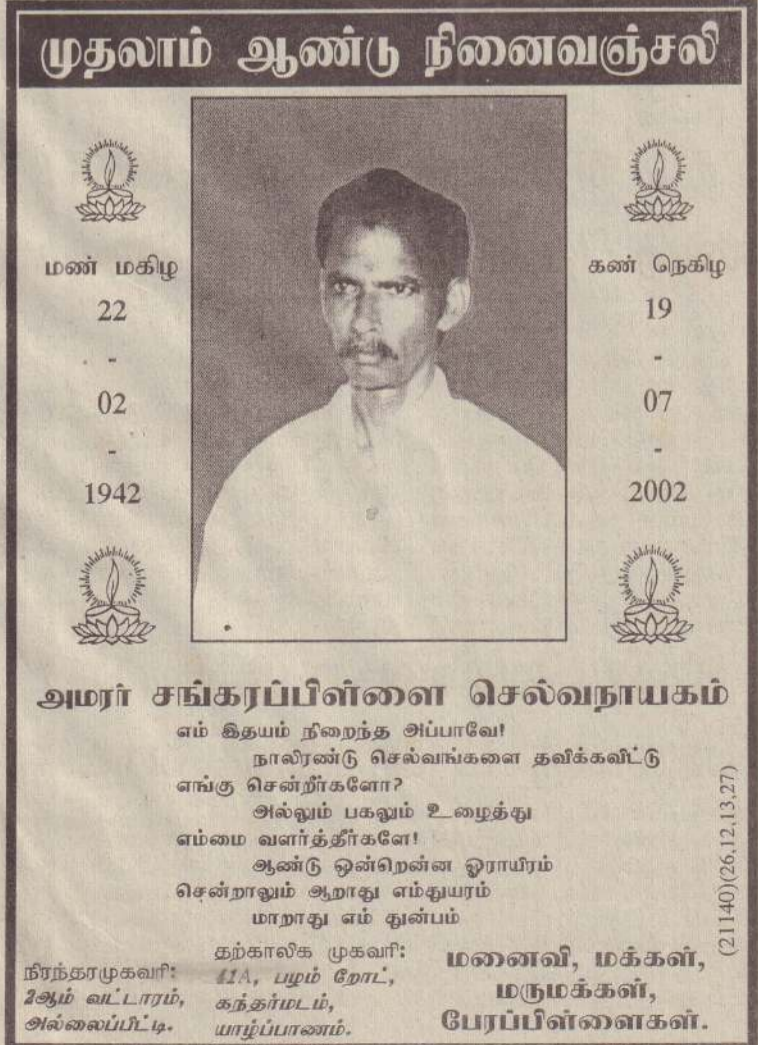 முதலாம் ஆண்டு நினைவஞ்சலி
மண் மகிழ
22
-
02
-
1942
கண் நெகிழ
19
-
07
-
2002
அமரர் சங்கரப்பிள்ளை செல்வநாயகம்
எம் இதயம் நிறைந்த அப்பாவே!
நாலிரண்டு செல்வங்களை தவிக்கவிட்டு
எங்கு சென்றீர்களோ?
அல்லும் பகலும் உழைத்து
எம்மை வளர்த்தீர்களே!
ஆண்டு ஒன்றென்ன ஓராயிரம்
சென்றாலும் ஆறாது எம்துயரம்
மாறாது எம் துன்பம்
நிரந்தரமுகவரி:
2ஆம் வட்டாரம்,
அல்லைப்பிட்டி.
தற்காலிக முகவரி:
41A, பழம் றோட்,
கந்தர்மடம்,
யாழ்ப்பாணம்.
மனைவி, மக்கள்,
மருமக்கள்,
பேரப்பிள்ளைகள்.
(21140)(26,12,13,27)